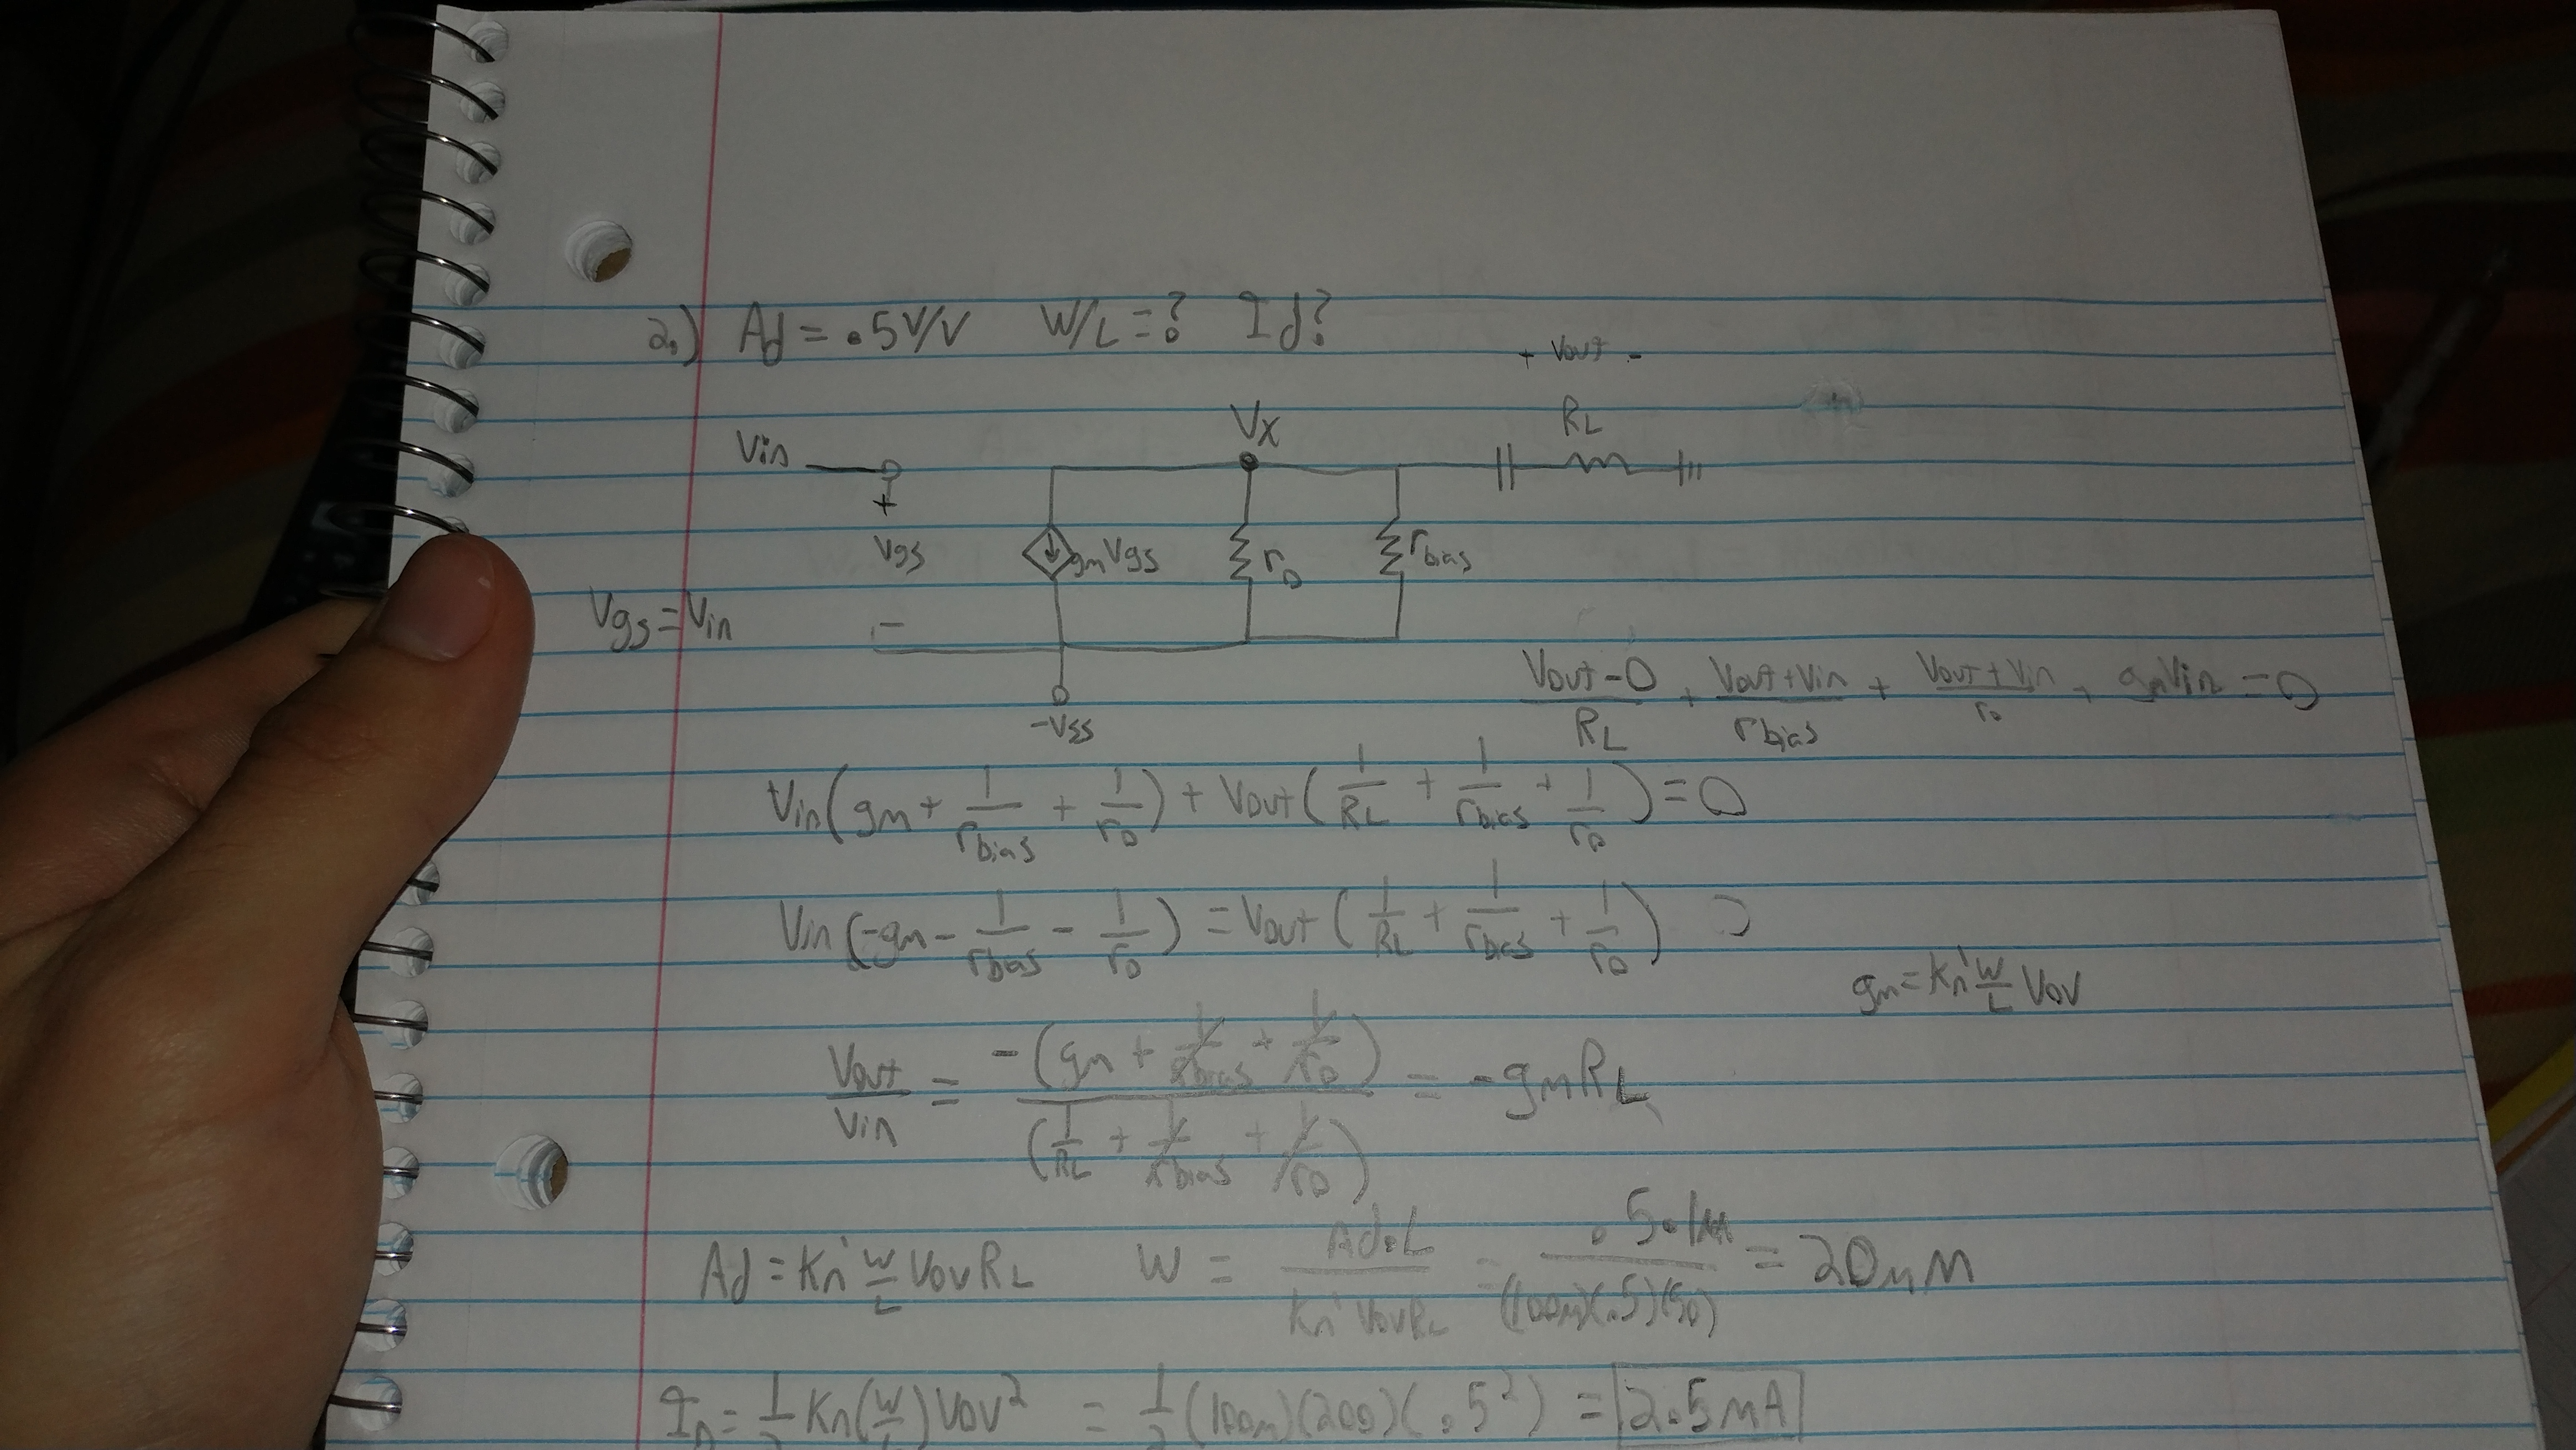 2.) Ad = .5V/V W/L = ? Id?
+ Vout -
Vx
RL
Vin
+
Vgs
gmVgs
ro
rbias
Vgs = Vin
-
-Vss
(Vout - 0)/RL + (Vout + Vin)/rbias + (Vout + Vin)/ro + gmVin = 0
Vin(gm + 1/rbias + 1/ro) + Vout(1/RL + 1/rbias + 1/ro) = 0
Vin(-gm - 1/rbias - 1/ro) = Vout(1/RL + 1/rbias + 1/ro)
gm = Kn' W/L Vov
Vout/Vin = -(gm + 1/rbias + 1/ro)/(1/RL + 1/rbias + 1/ro) = -gmRL
Ad = Kn' W/L VovRL W = Ad·L/(Kn' VovRL) = .5·1μ/((100μ)(.5)(50)) = 20μM
ID = 1/2 Kn(W/L)Vov² = 1/2(100μ)(200)(.5²) = 2.5mA